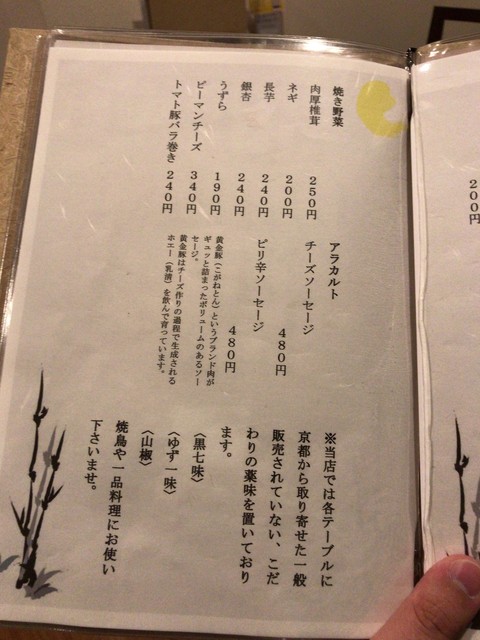 焼き野菜
肉厚椎茸 250円
ネギ 200円
長芋 240円
銀杏 240円
うずら 190円
ピーマンチーズ 340円
トマト豚バラ巻き 240円
アラカルト
チーズソーセージ
480円
ピリ辛ソーセージ
480円
黄金豚（こがねとん）というブランド肉が
ギュッと詰まったボリュームのあるソー
セージ。
黄金豚はチーズ作りの過程で生成される
ホエー（乳清）を飲んで育っています。
※当店では各テーブルに
京都から取り寄せた一般
販売されていない、こだ
わりの薬味を置いており
ます。
〈黒七味〉
〈ゆず一味〉
〈山椒〉
焼鳥や一品料理にお使い
下さいませ。
200円